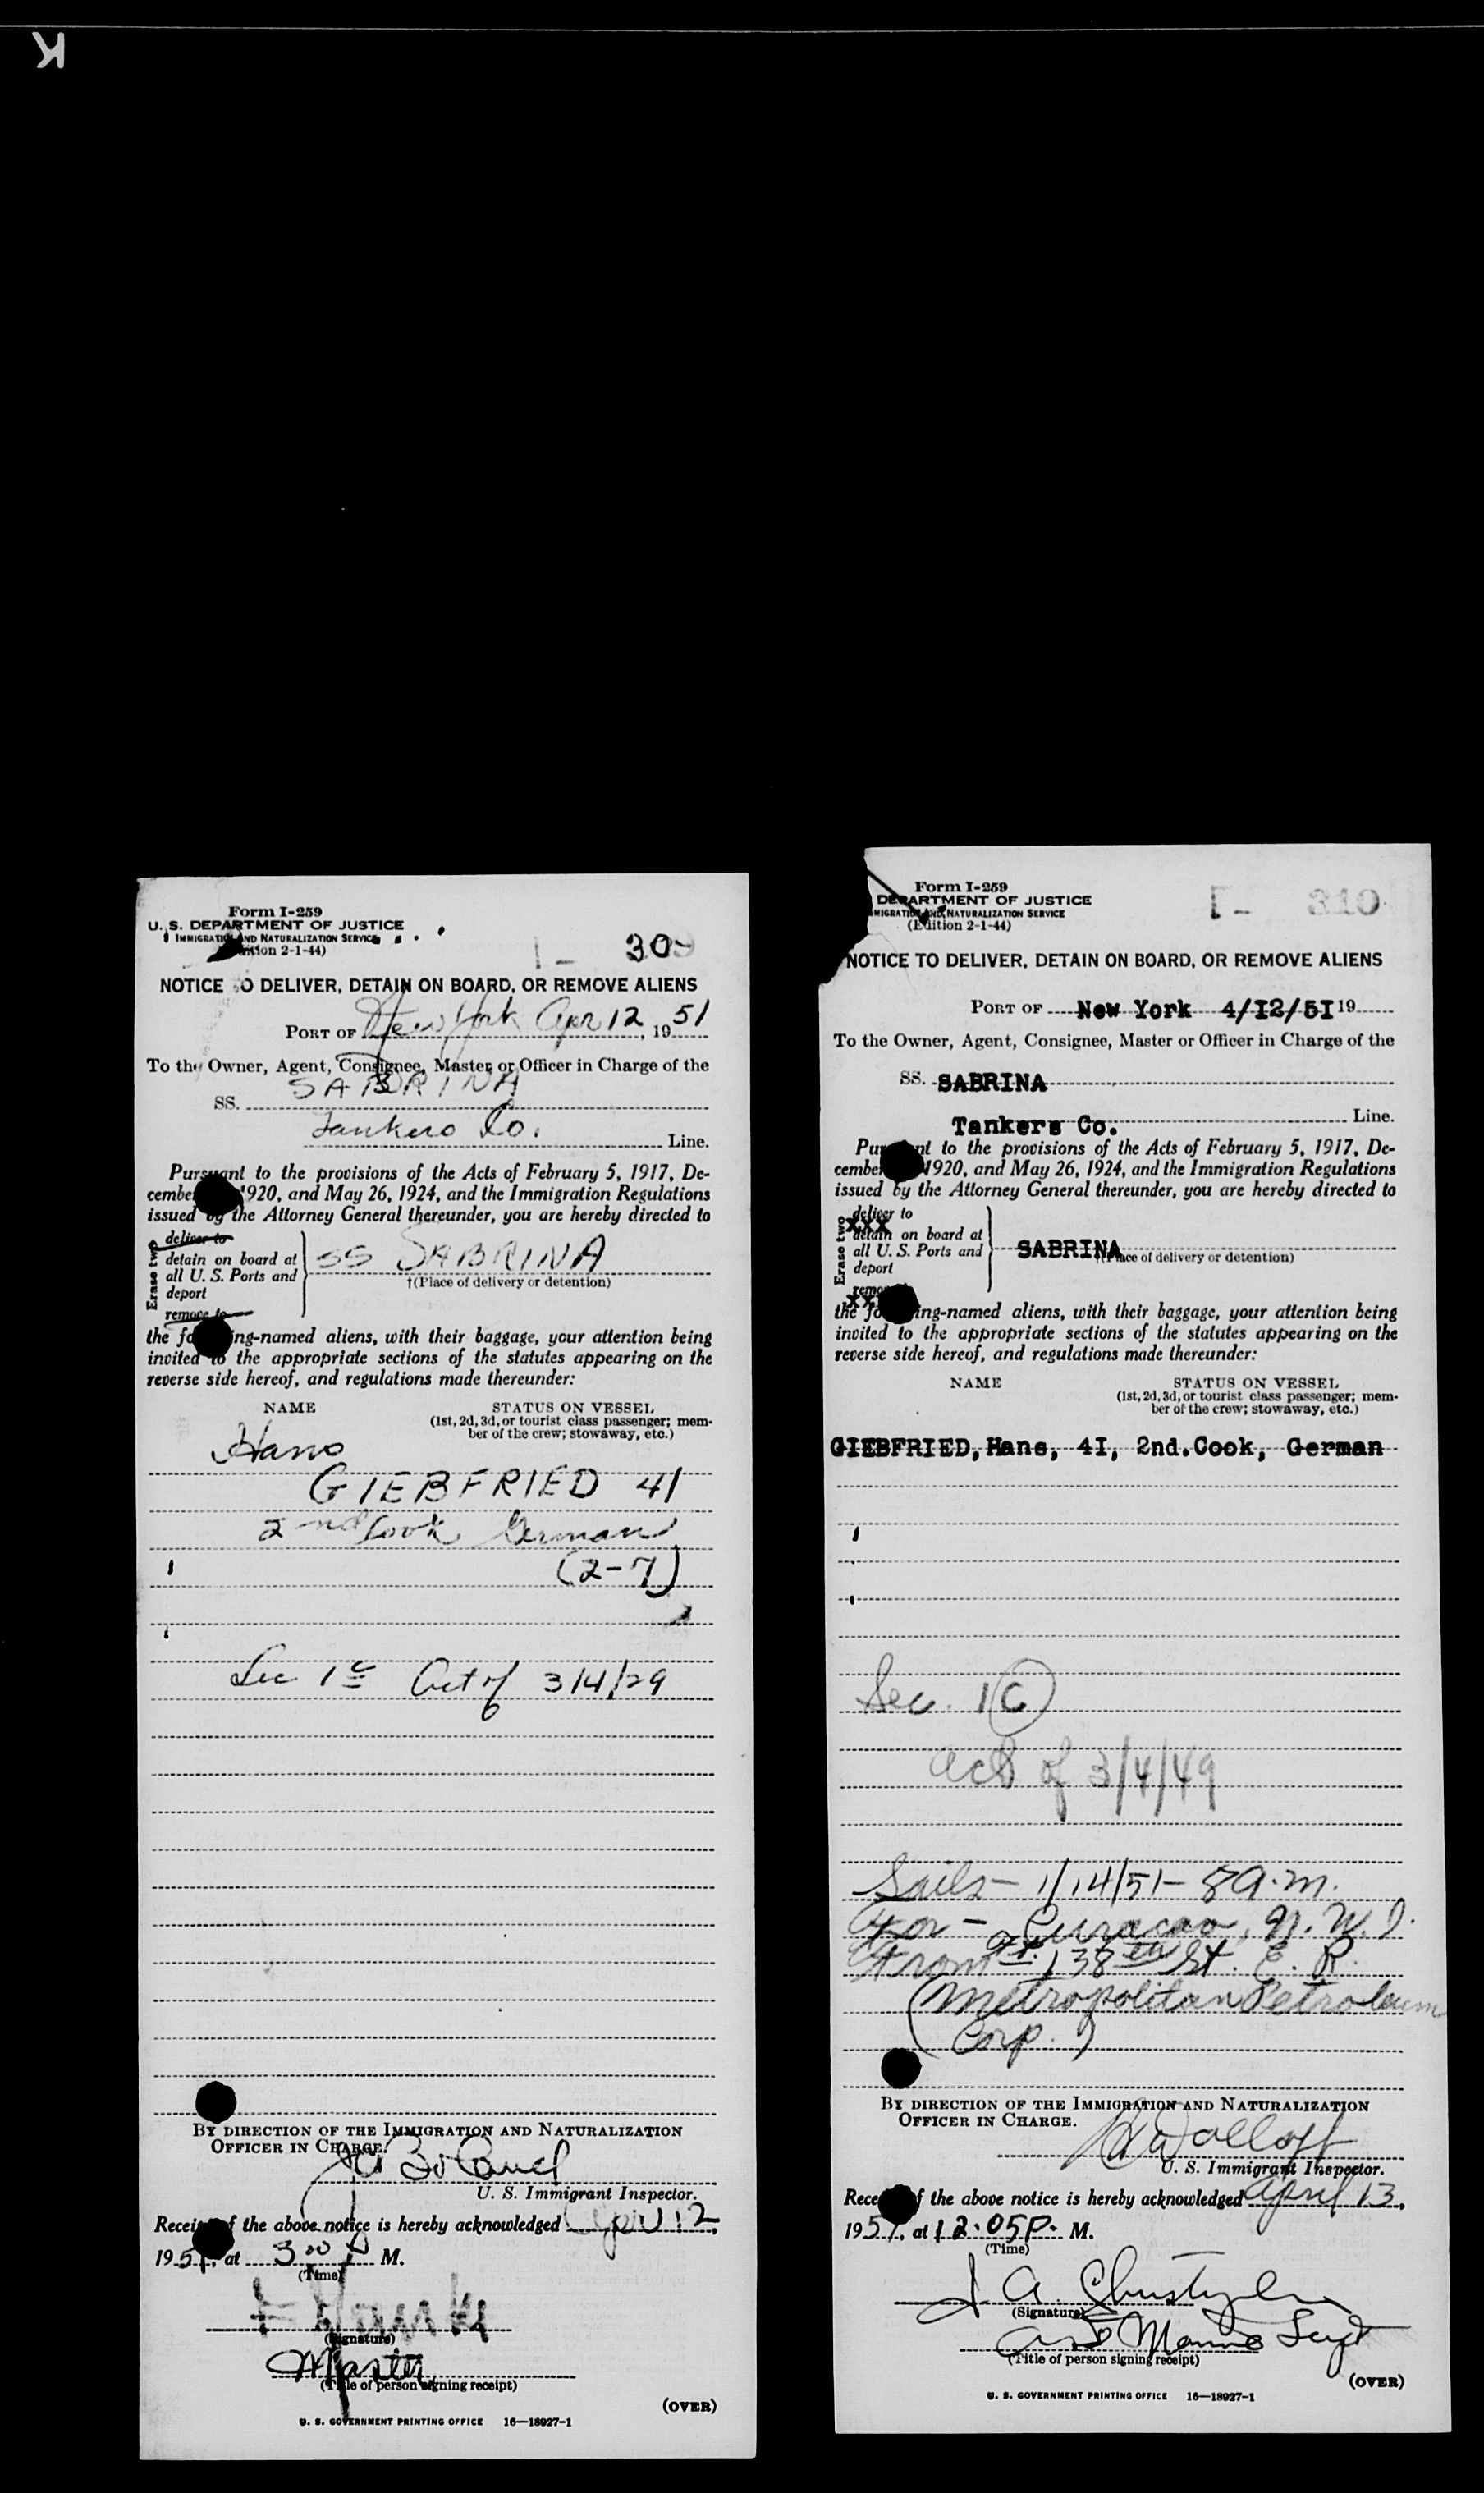 K
Form I-259
U. S. DEPARTMENT OF JUSTICE
IMMIGRATION AND NATURALIZATION SERVICE
(Edition 2-1-44)
309
NOTICE TO DELIVER, DETAIN ON BOARD, OR REMOVE ALIENS
PORT OF New York Apr 12, 1951
To the Owner, Agent, Consignee, Master or Officer in Charge of the
SS. SABRINA
Tankers Co. Line.
Pursuant to the provisions of the Acts of February 5, 1917, De-
cember 1920, and May 26, 1924, and the Immigration Regulations
issued by the Attorney General thereunder, you are hereby directed to
Erase two
deliver to
detain on board at
all U. S. Ports and
deport
remove to
SS SABRINA
†(Place of delivery or detention)
the following-named aliens, with their baggage, your attention being
invited to the appropriate sections of the statutes appearing on the
reverse side hereof, and regulations made thereunder:
NAME STATUS ON VESSEL
(1st, 2d, 3d, or tourist class passenger; mem-
ber of the crew; stowaway, etc.)
Hans
GIEBFRIED 41
2nd Cook German
(2-7)
Sec 1c Act of 3/4/29
BY DIRECTION OF THE IMMIGRATION AND NATURALIZATION
OFFICER IN CHARGE.
U. S. Immigrant Inspector.
Receipt of the above notice is hereby acknowledged April 12,
1951, at 3 00 P M.
(Time)
(Signature)
Master
(Title of person signing receipt)
(OVER)
U. S. GOVERNMENT PRINTING OFFICE 16—18027-1
Form I-259
DEPARTMENT OF JUSTICE
IMMIGRATION AND NATURALIZATION SERVICE
(Edition 2-1-44)
I - 310
NOTICE TO DELIVER, DETAIN ON BOARD, OR REMOVE ALIENS
PORT OF New York 4/I2/5I 19
To the Owner, Agent, Consignee, Master or Officer in Charge of the
SS. SABRINA
Tankers Co. Line.
Pursuant to the provisions of the Acts of February 5, 1917, De-
cember 1920, and May 26, 1924, and the Immigration Regulations
issued by the Attorney General thereunder, you are hereby directed to
Erase two
deliver to
xxx
detain on board at
all U. S. Ports and
deport
remove
xx
SABRINA
†(Place of delivery or detention)
the following-named aliens, with their baggage, your attention being
invited to the appropriate sections of the statutes appearing on the
reverse side hereof, and regulations made thereunder:
NAME STATUS ON VESSEL
(1st, 2d, 3d, or tourist class passenger; mem-
ber of the crew; stowaway, etc.)
GIEBFRIED, Hans, 4I, 2nd. Cook, German
Sec. 1 C
Act of 3/4/49
Sails - 1/14/51 - 8 a.m.
For - Curacao, N. W. I.
From - Ft. 138th St. E. R.
(Metropolitan Petroleum
Corp.)
BY DIRECTION OF THE IMMIGRATION AND NATURALIZATION
OFFICER IN CHARGE.
U. S. Immigrant Inspector.
Receipt of the above notice is hereby acknowledged April 13,
1951, at 12.05 P. M.
(Time)
(Signature)
Asst Marine Supt
(Title of person signing receipt)
(OVER)
U. S. GOVERNMENT PRINTING OFFICE 16—18027-1